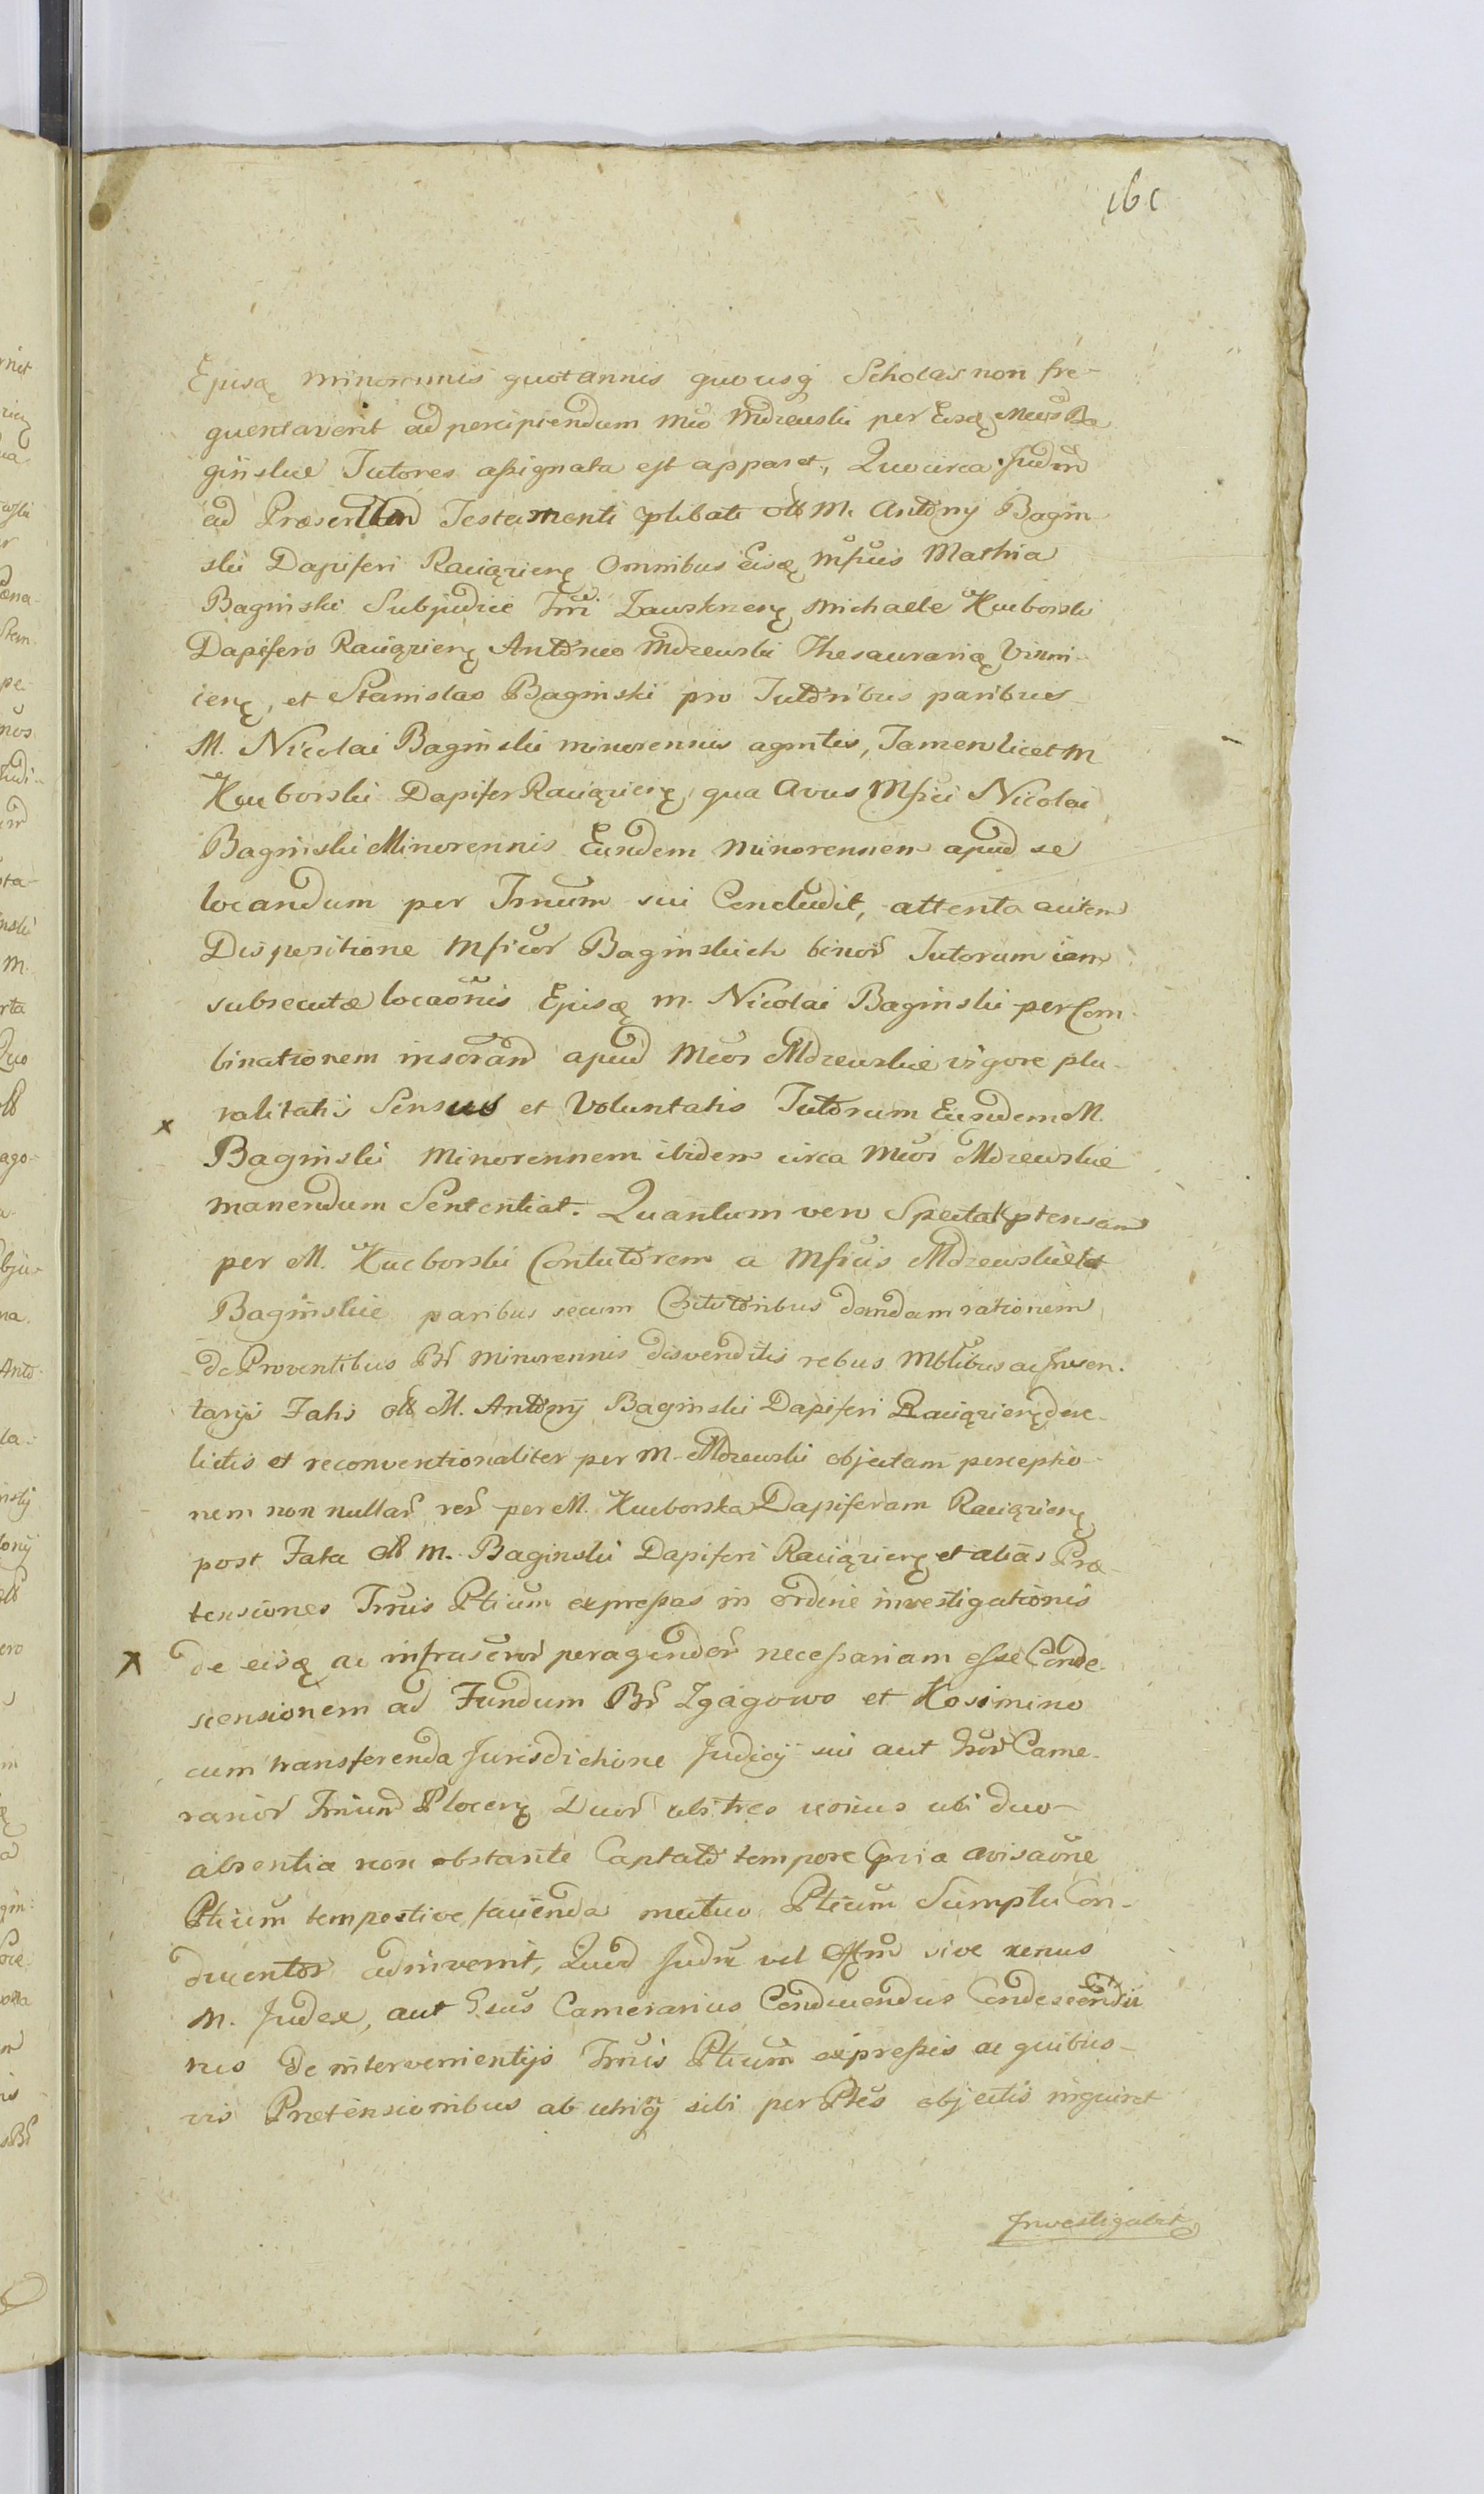 161
Ejusq minorennis quotannis quousq Scholas non fre-
quentaverit ad percipiendum Mco Mdzewski per Eosq Mcos Ba
ginskie Tutores assignata est apparet, Quocirca Judm
ad Præsentan Testamenti plibati olł M. Antony Bagin
ski Dapiferi Raciązieng Omnibus Eisq Mficis Mathia
Baginski Subjudice Trri Zawskrieng Michaele Kucborski
Dapifero Raciązieng Antonio Mdzewski Thesaurario Winni-
ceng, et Stanislao Baginski pro Tutoribus paribus
M. Nicolai Baginski minorennis agnitis, Tamen licet M
Kucborski Dapifer Raciązieng, qua Avus Mfici Nicolai
Baginski Minorennis Eundem Minorennem apud se
locandum per Trnum sui Concludit, attenta autem
Dispositione Mficor Baginskich binor Tutorum iam
subsecutæ locaonis Ejusq M. Nicolai Baginski per Com
binationem insoran apud Mcos Mdzewskie vigore plu-
x ralitatis Sensus et Voluntatis Tutorum Eundem M.
Baginski Minorennem ibidem circa Mcos Mdzewskie
manendum Sententiat. Quantum vero Spectat ptensam
per M. Kucborski Contutorem a Mficis Mdzewskie et
Baginskie paribus secum Contutoribus dandam rationem
de Proventibus Br Minorennis disvenditis rebus Mblibus ac Inven-
tarys Fatis olł M. Antony Baginski Dapiferi Raciązieng dere-
lictis et reconventionaliter per M. Mdzewski objectam perceptio-
nem non nullar rer per M. Kucborska Dapiferam Raciązieng
post Fata olł M. Baginski Dapiferi Raciązieng et alias Præ-
tensiones Trnis Ptium expressas in ordine investigationis
x de eisq ac infrascror peragendor necessariam esse Conde-
scensionem ad Fundum Br Zgagowo et Kosimino
cum transferenda Jurisdictione Judicy sui aut Camer-
rarior Trrium Ploceng Duor ubi tres unius ubi duo
absentia non obstante Captato tempore pvia avisaone
Ptium tempestive facienda mutuo Ptium Sumptu Con-
ducentor adinvenit, Quod Judm vel sive unus
M. Judex, aut Camerarius Conducendus Condescendii
nis de intervenientys Trnis Ptium expressis ac quibus-
vis Prætensionibus ab utrinq sibi per Ptes objectis inquiret
Investigabit